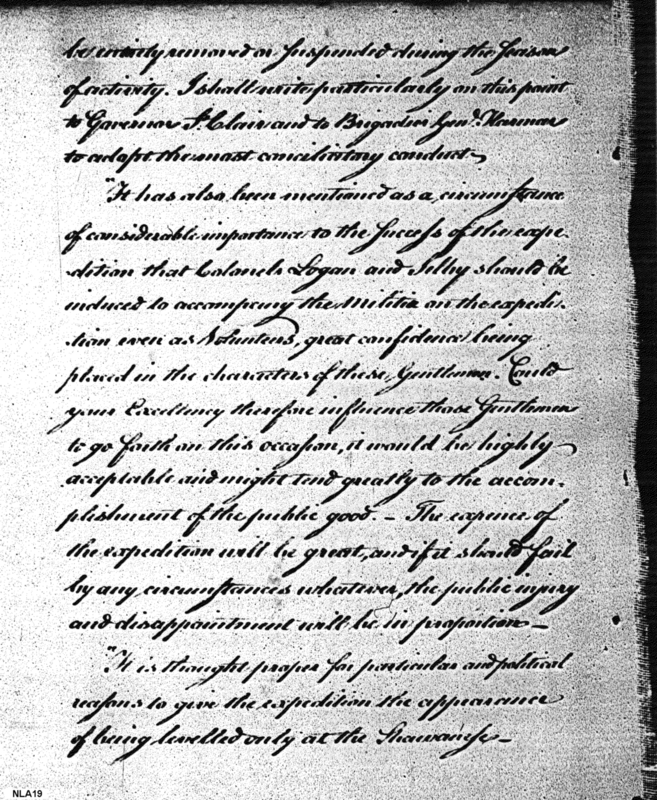 be entirely removed or suspended during the season
of activity. I shall write particularly on this point
to Governor St. Clair and to Brigadier Genl. Harmar
to adopt the most conciliatory conduct—
"It has also been mentioned as a circumstance
of considerable importance to the success of the expe-
dition that Colonels Logan and Selby should be
induced to accompany the Militia on the expedi-
tion even as Volunteers, great confidence being
placed in the characters of these Gentlemen. Could
your Excellency therefore influence those Gentlemen
to go forth on this occasion, it would be highly
acceptable and might tend greatly to the accom-
plishment of the public good. — The expence of
the expedition will be great, and if it should fail
by any circumstances whatever, the public injury
and disappointment will be in proportion —
"It is thought proper for particular and political
reasons to give the expedition the appearance
of being levelled only at the Shawanese —
NLA19